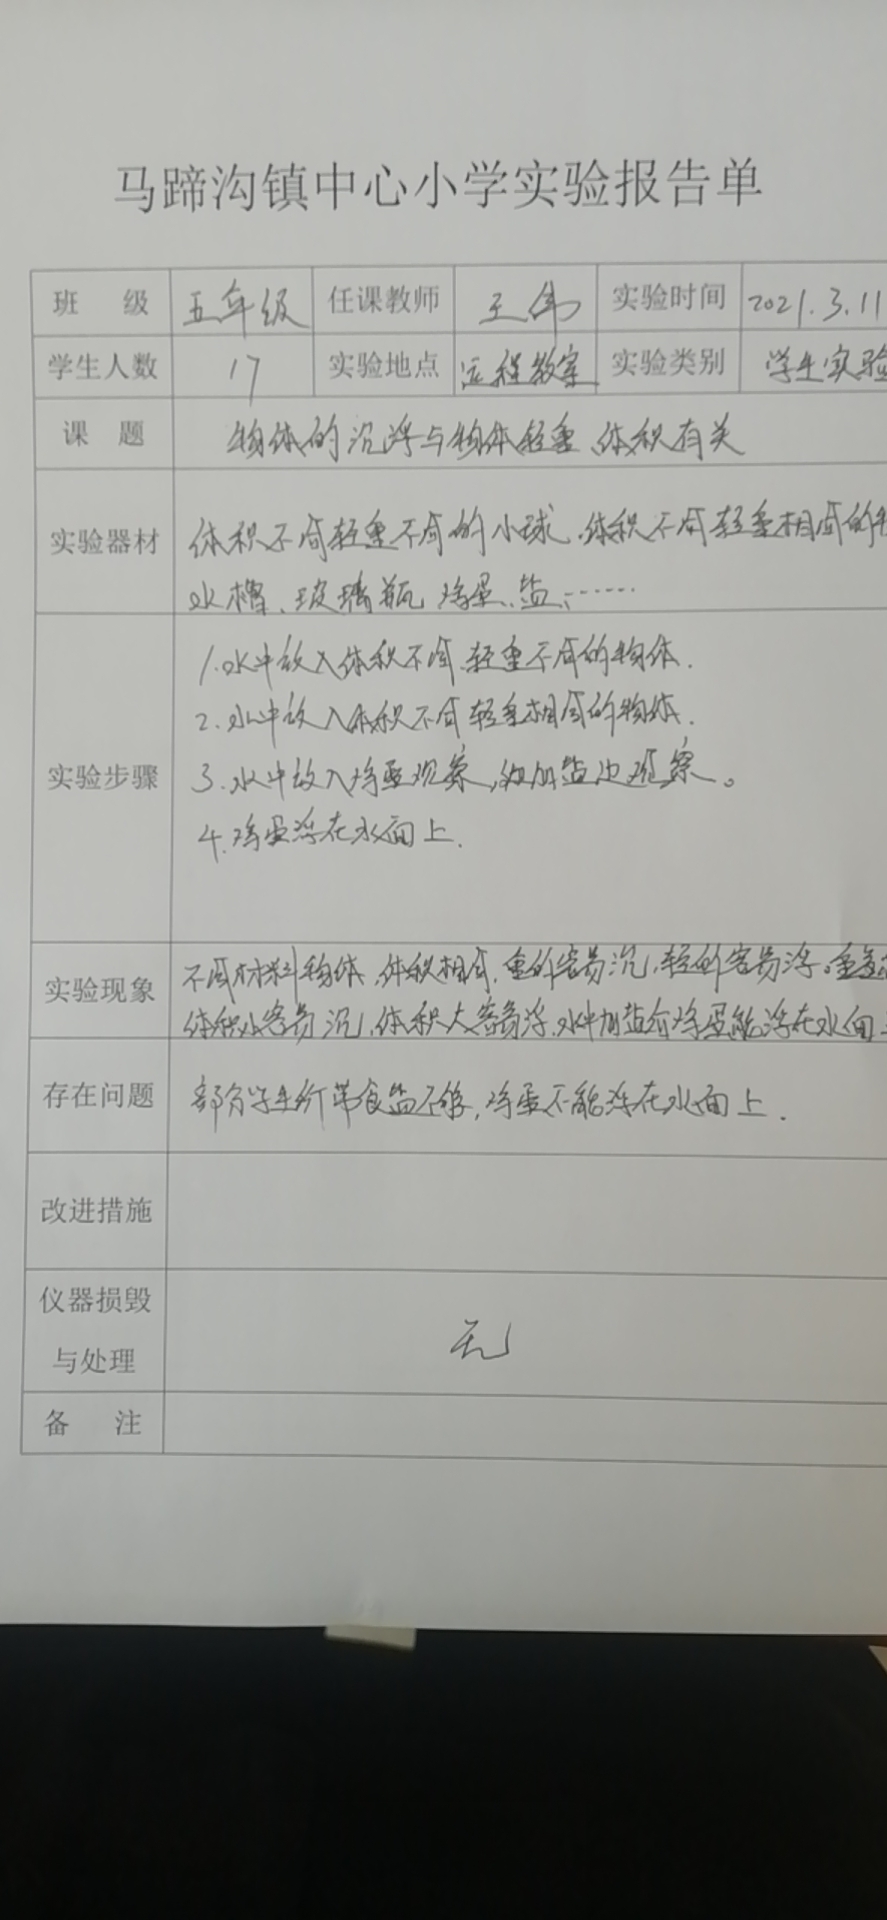 马蹄沟镇中心小学实验报告单
班 级 五年级 任课教师 王伟 实验时间 2021.3.11
学生人数 17 实验地点 远程教室 实验类别 学生实验
课 题 物体的沉浮与物体轻重、体积有关
实验器材
体积不同轻重不同的小球、体积不同轻重相同的
水槽、玻璃瓶、鸡蛋、盐、……
实验步骤
1.水中放入体积不同、轻重不同的物体.
2.水中放入体积不同轻重相同的物体.
3.水中放入鸡蛋观察,边加盐边观察。
4.鸡蛋浮在水面上.
实验现象
不同材料物体、体积相同,重的容易沉,轻的容易浮。重
体积小容易沉,体积大容易浮.水中加盐后鸡蛋能浮在水面
存在问题 部分学生所带食盐不够,鸡蛋不能浮在水面上.
改进措施
仪器损毁
与处理 无
备 注